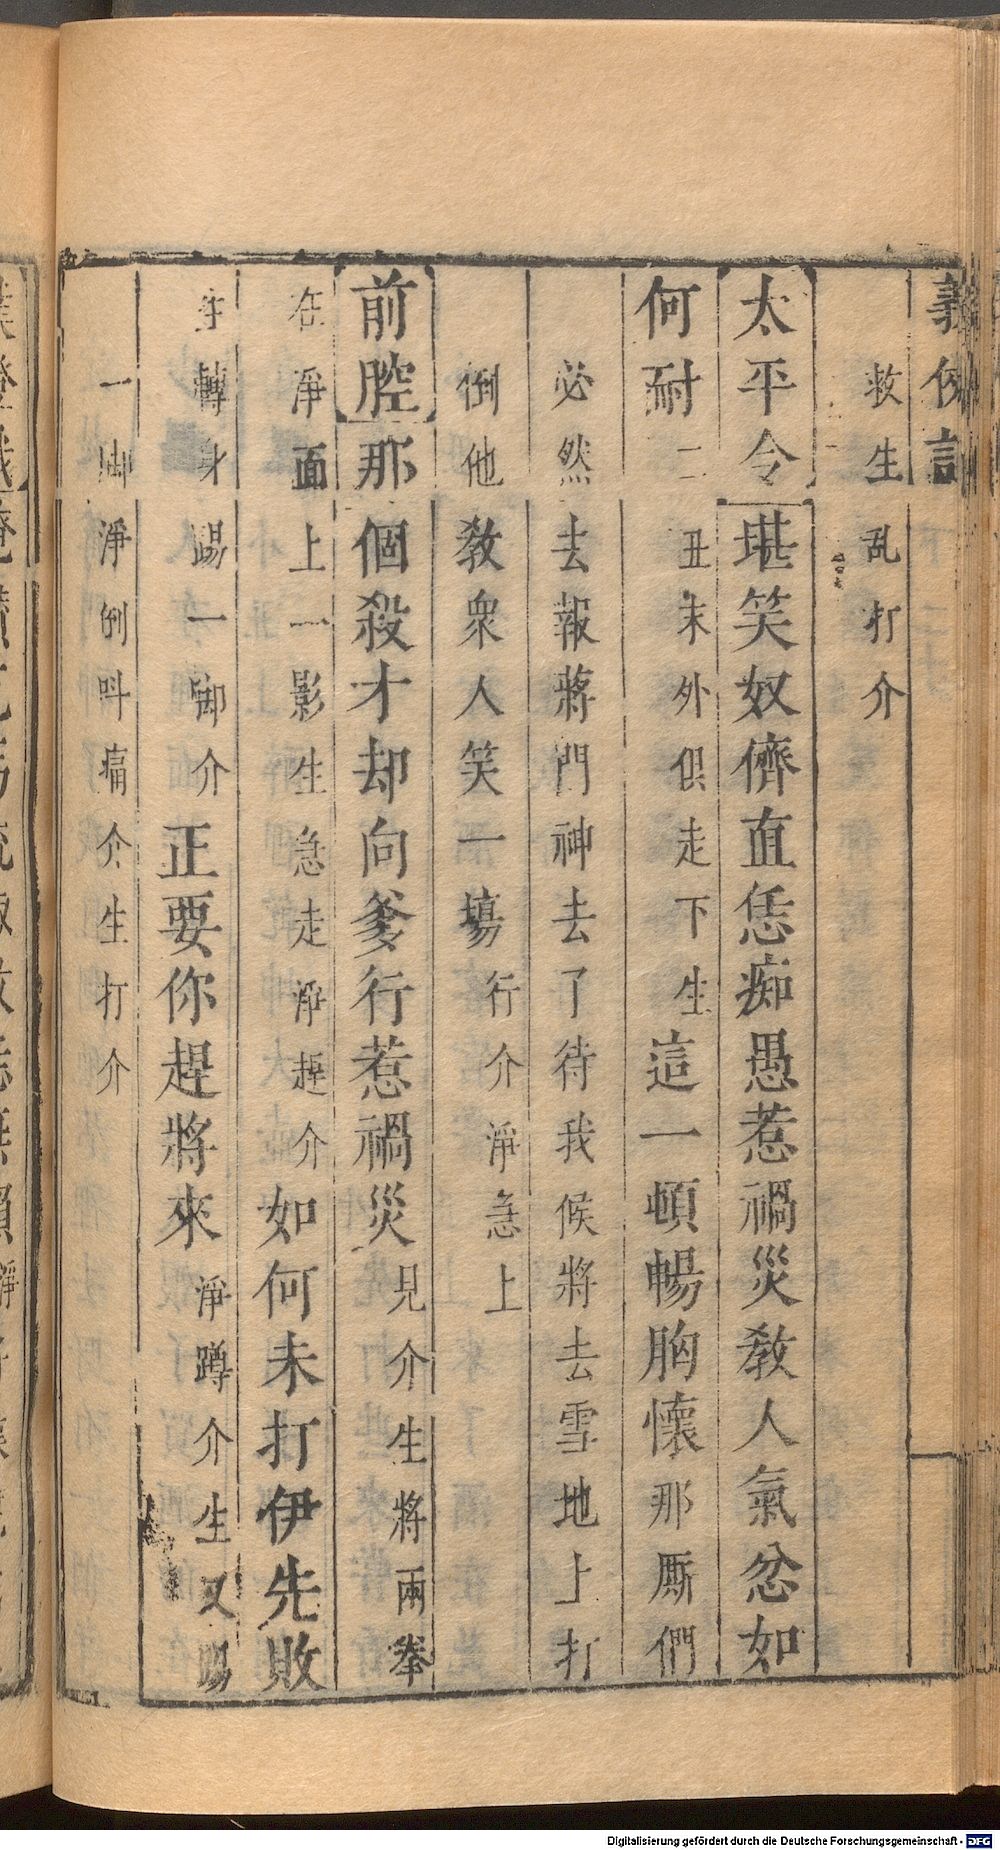 義俠記
救生乱打介
太平令堪笑奴儕直恁痴愚惹禍災教人氣忿如
何耐二丑末外俱走下生這一頓暢胸懷那厮們
必然去報蔣門神去了待我候將去雪地上打
倒他教衆人笑一塲行介淨急上
前腔那個殺才却向爹行惹禍災見介生將兩拳
在淨面上一影生急走淨趕介如何未打伊先敗
淨轉身踢一脚介正要你趕將來淨蹲介生又踢
一脚淨倒呌痛介生打介
Digitalisierung gefördert durch die Deutsche Forschungsgemeinschaft - DFG